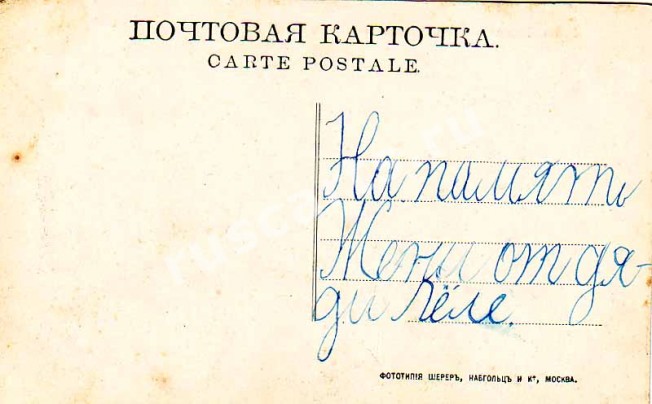 ПОЧТОВАЯ КАРТОЧКА.
CARTE POSTALE.
На память
Жени от дя-
ди Лёле.
ФОТОТИПІЯ ШЕРЕРЪ, НАБГОЛЬЦЪ И Кº, МОСКВА.